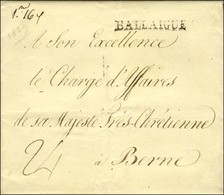 BALLAIGUE
A Son Excellence
le Chargé d'Affaires
de sa Majesté Très Chrétienne
à Berne